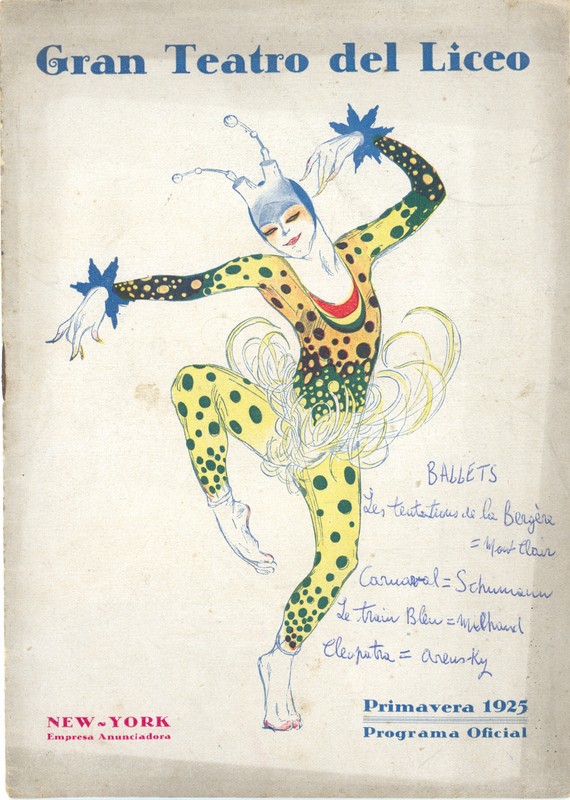 Gran Teatro del Liceo
BALLETS
Les tentations de la Bergère
= Mont Clair
Carnaval = Schumann
Le train Bleu = Milhaud
Cleopatra = Arensky
NEW~YORK
Empresa Anunciadora
Primavera 1925
Programa Oficial